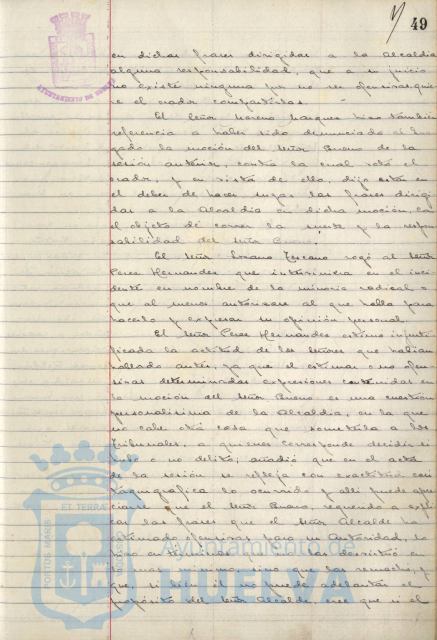 49
AYUNTAMIENTO DE
en dichas frases dirigidas a la Alcaldia
alguna responsabilidad, que a su juicio
no existe ninguna por no ser ofensivas, que
es el orador compartidas.
El Señor Moreno Marquez hizo también
referencia a haber sido denunciado al Juz
gado la moción del Señor Bueno de la
sesión anterior, contra la cual votó el
orador, y en vista de ello, dijo estar en
el deber de hacer suyas las frases dirigi
das a la Alcaldia en dicha moción, con
el objeto de correr la suerte y la respon
sabilidad del Señor Bueno.
El Señor Lozano Toscano rogó al Señor
Perez Hernandez que interviniera en el inci
dente en nombre de la minoria radical o
que al menos autorizase al que habla para
hacerlo y expresar su opinión personal.
El Señor Perez Hernandez estima injusti
ficada la actitud de los Señores que habian
hablado antes, ya que el estimar o no ofen
sivas determinadas expresiones contenidas en
la moción del Señor Bueno es una cuestión
personalisima de la Alcaldia, en la que
no cabe otra cosa que someterla a los
Tribunales, a quienes corresponde decidir si
hubo o no delito; añadió que en el acta
de la sesión se refleja con exactitud casi
taquigrafica lo ocurrido y alli puede apre
ciarse que el Señor Bueno, requerido a expli
car las frases que el Señor Alcalde ha
estimado ofensivas para su Autoridad, lo
hizo en terminos que no las desvirtuó en
lo mas minimo, sino que las remachó, y
que, si bien él no puede adelantar el
propósito del Señor Alcalde, cree que si el
PORTUS MARIS
EL TERRA
Ayuntamiento de
HUELVA